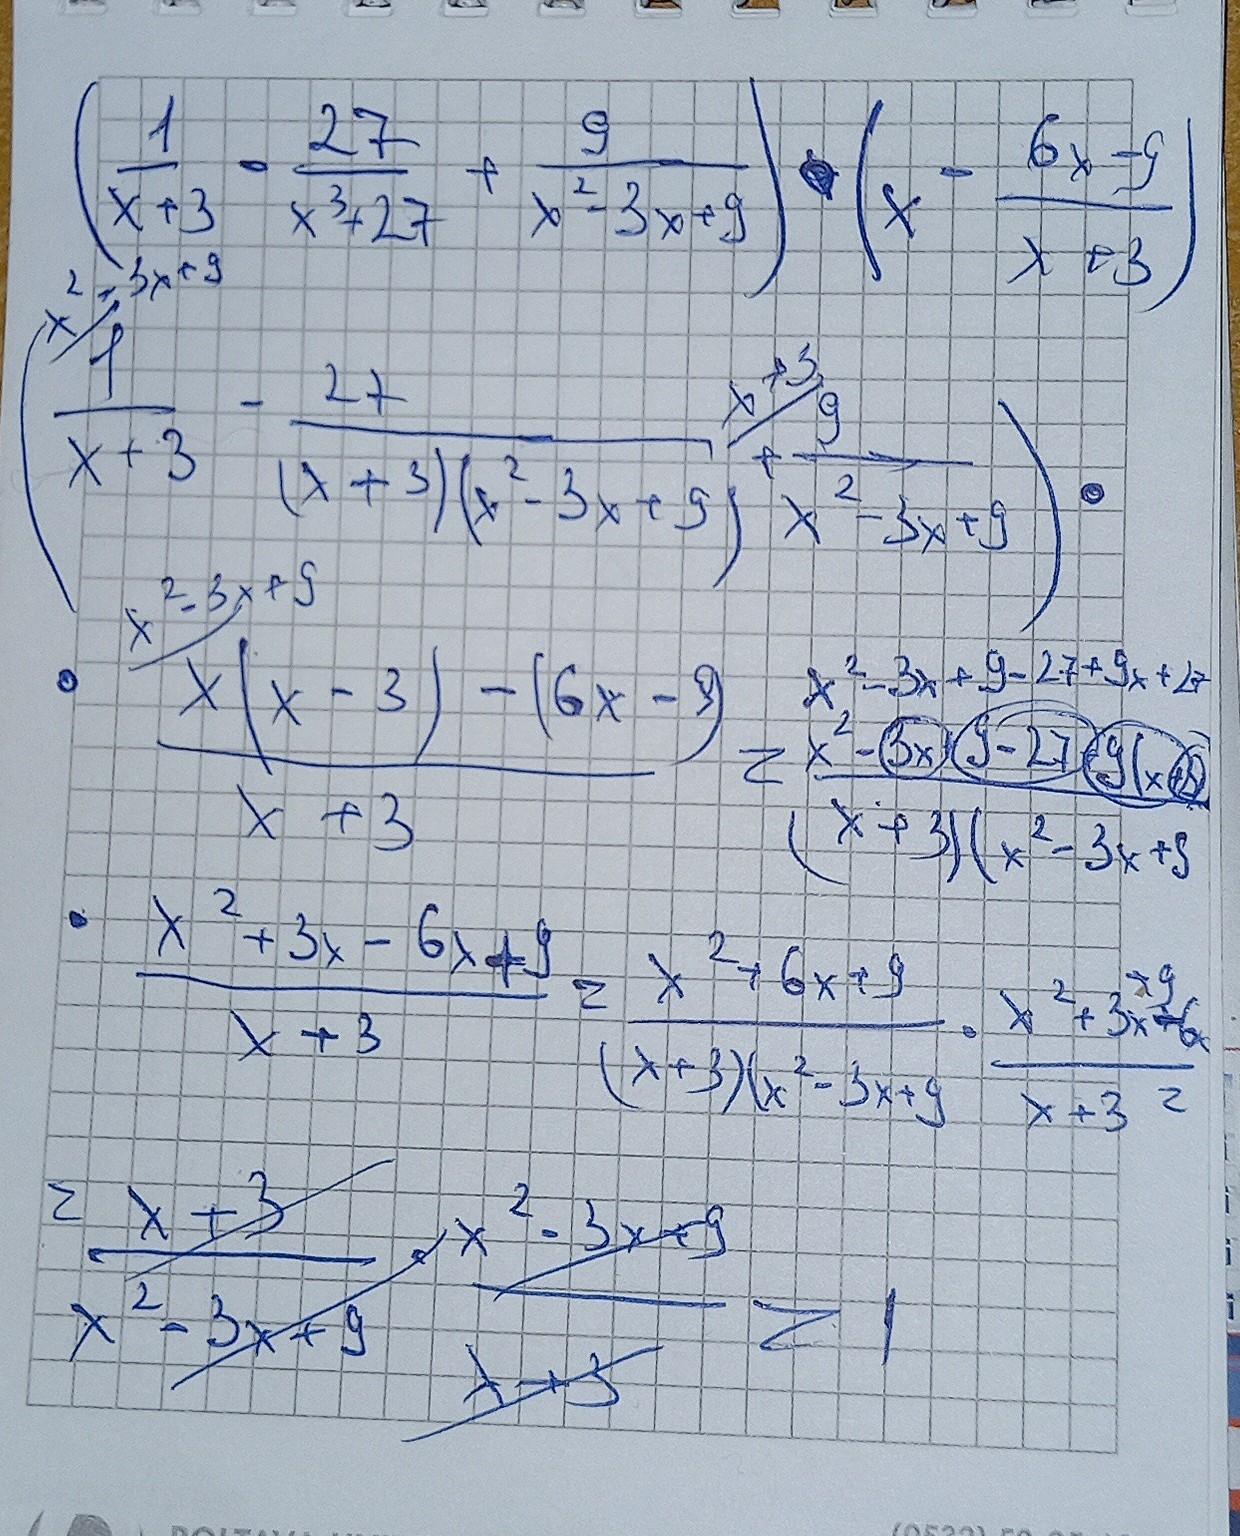 (1/(x+3) - 27/(x³+27) + 9/(x²-3x+9)) • (x - (6x-9)/(x+3))
x²-3x+9 x+3
(1/(x+3) - 27/((x+3)(x²-3x+9)) + 9/(x²-3x+9)) •
x²-3x+9
• (x(x-3)-(6x-9))/(x+3) = x²-3x+9-27+9x+27
(x²-3x+9-27+9(x+3))/((x+3)(x²-3x+9
• (x²+3x-6x+9)/(x+3) = (x²+6x+9)/((x+3)(x²-3x+9) • (x²+3x-6x+9)/(x+3) =
= (x+3)/(x²-3x+9) • (x²-3x+9)/(x+3) = 1